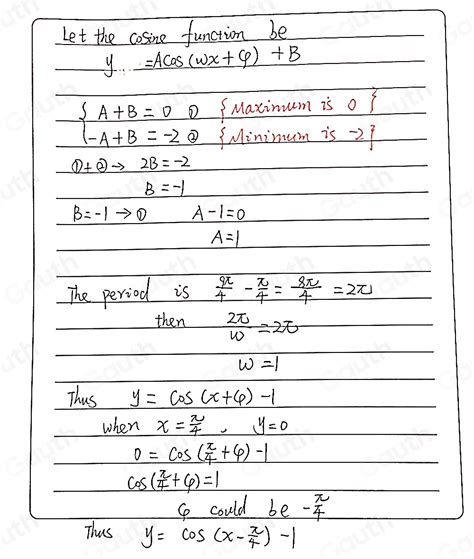 Let the cosine function be
y = Acos(wx + φ) + B
{ A + B = 0 ① {Maximum is 0}
{ -A + B = -2 ② {Minimum is -2}
①+② → 2B = -2
B = -1
B = -1 → ① A - 1 = 0
A = 1
The period is 9π/4 - π/4 = 8π/4 = 2π
then 2π/w = 2π
w = 1
Thus y = cos(x+φ) - 1
when x = π/4, y = 0
0 = cos(π/4 + φ) - 1
cos(π/4 + φ) = 1
φ could be -π/4
Thus y = cos(x - π/4) - 1
Gauth